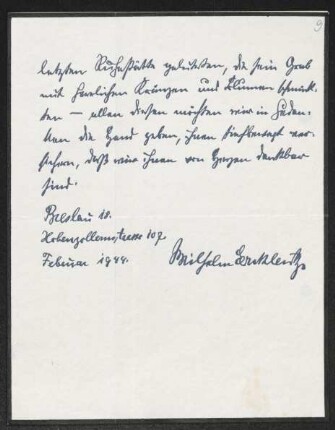 9
letzten Ruhestätte geleiteten, die sein Grab
mit herrlichen Kränzen und Blumen schmück-
ten — allen diesen möchten wir in Gedan-
ken die Hand geben, ihnen tiefbewegt ver-
sichern, daß wir ihnen von Herzen dankbar
sind.
Breslau 18.
Hohenzollernstrasse 107
Februar 1944.
Wilhelm